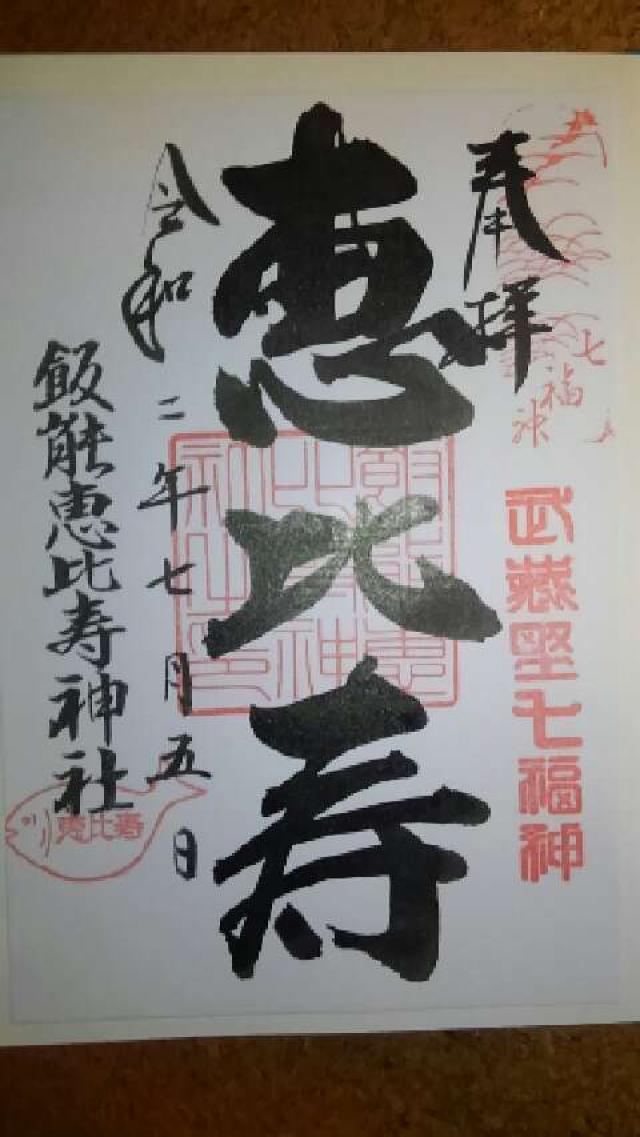 奉拝
七福神
武蔵野七福神
恵比寿
令和二年七月五日
飯能恵比寿神社
恵比寿